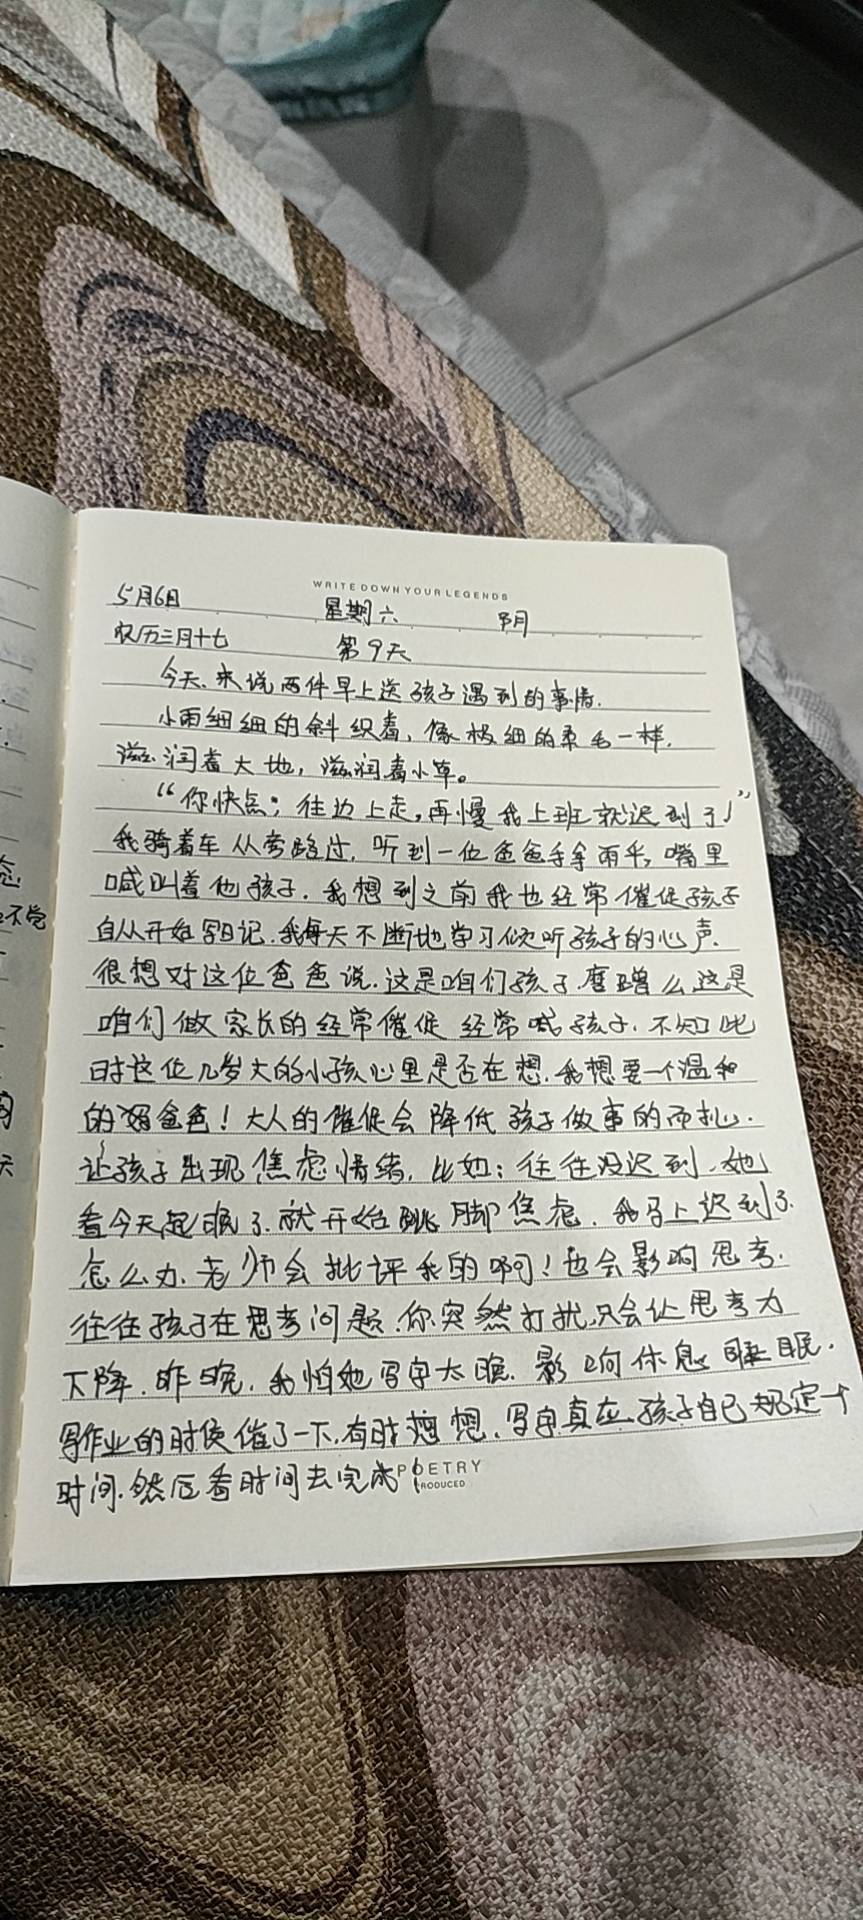 WRITE DOWN YOUR LEGENDS
5月6日 星期六
农历三月十七 第9天
今天.来说两件早上送孩子遇到的事情.
小雨细细的斜织着,像极细的柔毛一样,
滋润着大地,滋润着小草。
“你快点;往边上走,再慢我上班就迟到了!”
我骑着车从旁路过.听到一位爸爸手拿雨伞,嘴里
喊叫着他孩子.我想到之前我也经常催促孩子
自从开始写日记.我每天不断地学习倾听孩子的心声.
很想对这位爸爸说.这是咱们孩子.磨蹭么这是
咱们做家长的经常催促 经常喊孩子.不知此
时这位几岁大的小孩心里是否在想.我想要一个温和
的好爸爸!大人的催促会降低孩子做事的
让孩子出现焦虑情绪.比如:往往没迟到.她
看今天起晚了.就开始跳脚焦虑.我马上迟到了.
怎么办.老师会批评我的啊!也会影响思考.
往往孩子在思考问题.你突然打扰.只会让思考力
下降.昨晚.我怕她写字太晚.影响休息睡眠.
写作业的时候催了一下.有时想想.写字真应孩子自己规定一个
时间.然后看时间去完成!
POETRY
PRODUCED